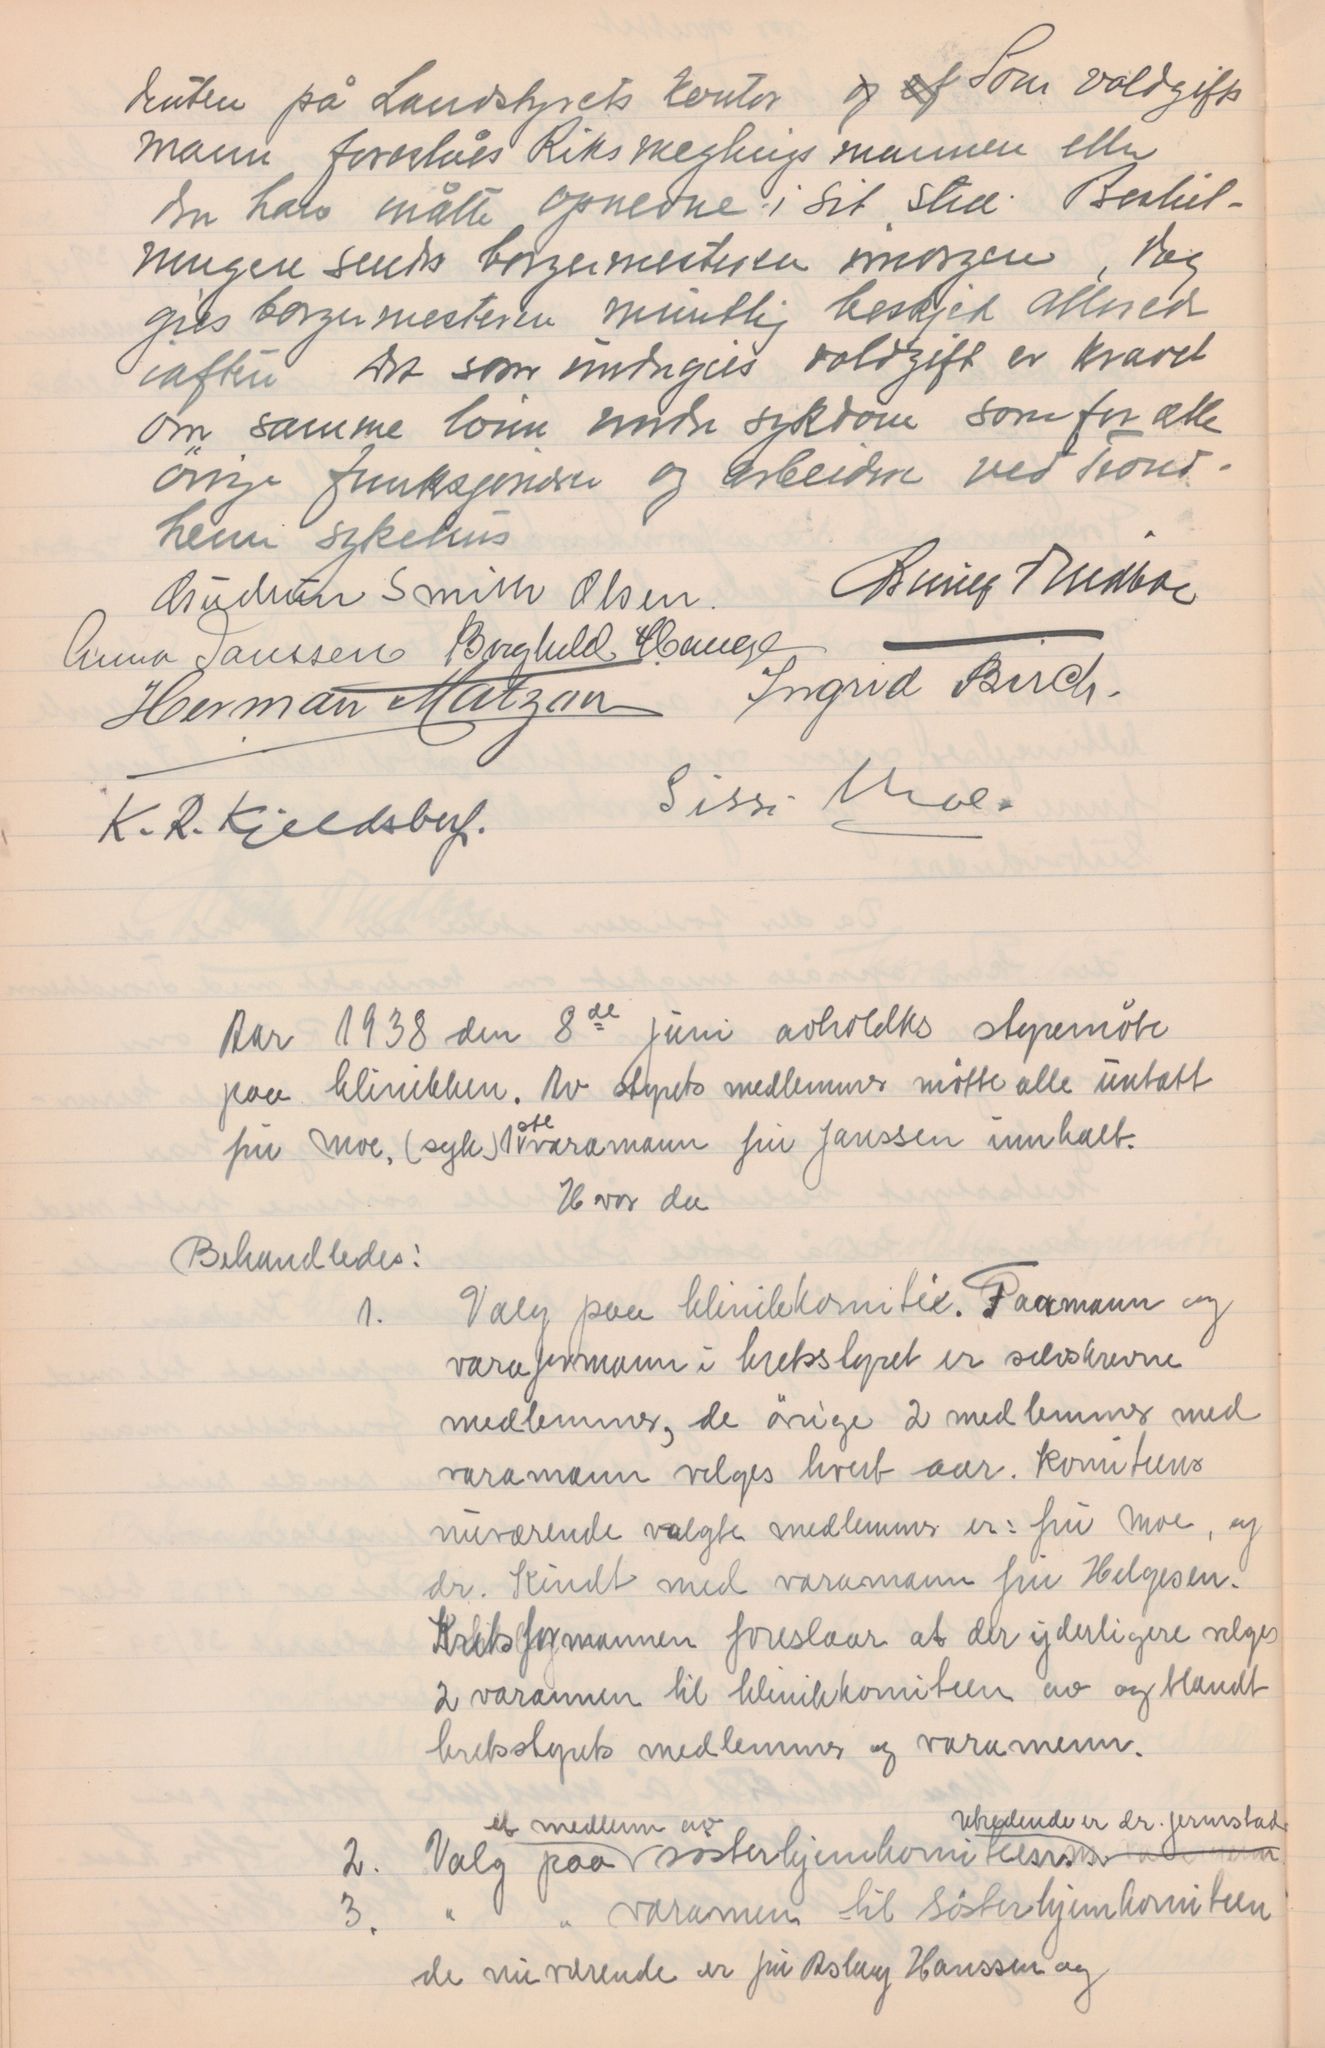 denten på Landstyrets kontor og Som voldgifts
mann foreslåes Riksmeglingsmannen eller
den han måtte opnevne i sit sted. Beslut-
ningen sendes borgermesteren imorgen, dog
gies borgermesteren muntlig beskjed allerede
iaften Det som undergies voldgift er kravet
om samme lönn under sykdom som for alle
övrige funksjonærer og arbeidere ved Trond-
heim sykehus
Gudrun Smith Olsen.
Anna Janssen Borghild Hauge
Herman Matzon Ingrid Birch.
K. R. Kjeldsberg. Sissi Moe.
Aar 1938 den 8de juni avholdtes styremöte
paa klinikken. Av styrets medlemmer mötte alle untatt
fru Moe, (syk) 1ste varamann fru Janssen innkalt.
Hvor da
Behandledes:
1. Valg paa klinikkomité. Formann og
varaformann i kretsstyret er selvskrevne
medlemmer, de övrige 2 medlemmer med
varamann velges hvert aar. Komiteens
nuværende valgte medlemmer er: fru Moe, og
dr. Kindt med varamann fru Helgesen.
Kretsformannen foreslaar at der yderligere velges
2 varamen til klinikkomiteen av og blandt
kretsstyrets medlemmer og varamenn.
et medlem av uttredende er dr. Jermstad
2. Valg paa söster hjemkomiteen
3. " " varamen til Sösterhjemkomiteen
de nuværende er fru Aslaug Hanssen og